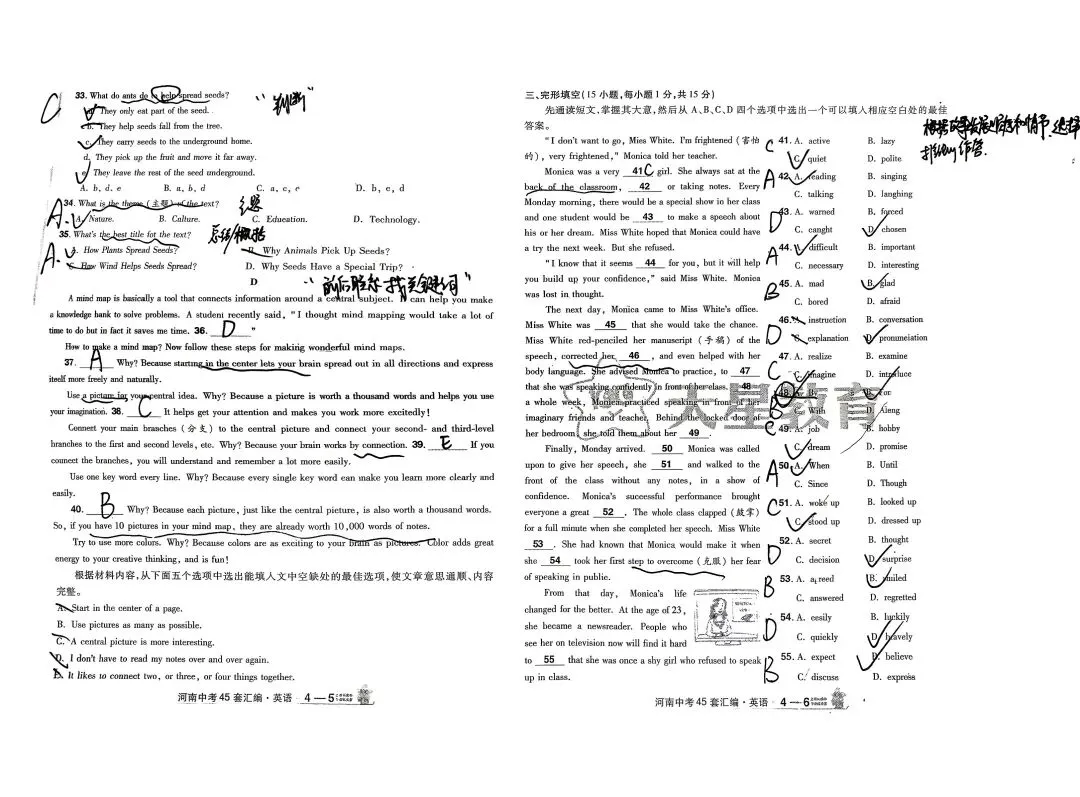 C
33. What do ants do to help spread seeds?
"判断"
a. They only eat part of the seed.
b. They help seeds fall from the tree.
c. They carry seeds to the underground home.
d. They pick up the fruit and move it far away.
e. They leave the rest of the seed underground.
A. b, d, e B. a, b, d C. a, c, e D. b, c, d
34. What is the theme (主题) of the text?
主题
A
A. Nature. B. Culture. C. Education. D. Technology.
35. What's the best title for the text?
总结/概括
A
A. How Plants Spread Seeds? B. Why Animals Pick Up Seeds?
C. How Wind Helps Seeds Spread? D. Why Seeds Have a Special Trip?
D
A mind map is basically a tool that connects information around a central subject. It can help you make
a knowledge bank to solve problems. A student recently said, "I thought mind mapping would take a lot of
time to do but in fact it saves me time. 36. D "
How to make a mind map? Now follow these steps for making wonderful mind maps.
37. A Why? Because starting in the center lets your brain spread out in all directions and express
itself more freely and naturally.
Use a picture for your central idea. Why? Because a picture is worth a thousand words and helps you use
your imagination. 38. C It helps get your attention and makes you work more excitedly!
Connect your main branches (分支) to the central picture and connect your second- and third-level
branches to the first and second levels, etc. Why? Because your brain works by connection. 39. E If you
connect the branches, you will understand and remember a lot more easily.
Use one key word every line. Why? Because every single key word can make you learn more clearly and
easily.
40. B Why? Because each picture, just like the central picture, is also worth a thousand words.
So, if you have 10 pictures in your mind map, they are already worth 10,000 words of notes.
Try to use more colors. Why? Because colors are as exciting to your brain as pictures. Color adds great
energy to your creative thinking, and is fun!
根据材料内容,从下面五个选项中选出能填入文中空缺处的最佳选项,使文章意思通顺、内容
完整。
A. Start in the center of a page.
B. Use pictures as many as possible.
C. A central picture is more interesting.
D. I don't have to read my notes over and over again.
E. It likes to connect two, or three, or four things together.
河南中考45套汇编·英语 4—5
三、完形填空(15小题,每小题1分,共15分)
先通读短文,掌握其大意,然后从A、B、C、D四个选项中选出一个可以填入相应空白处的最佳
答案。
"I don't want to go, Miss White. I'm frightened (害怕
的), very frightened," Monica told her teacher.
Monica was a very 41C girl. She always sat at the
back of the classroom, 42 or taking notes. Every
Monday morning, there would be a special show in her class
and one student would be 43 to make a speech about
his or her dream. Miss White hoped that Monica could have
a try the next week. But she refused.
"I know that it seems 44 for you, but it will help
you build up your confidence," said Miss White. Monica
was lost in thought.
The next day, Monica came to Miss White's office.
Miss White was 45 that she would take the chance.
Miss White red-penciled her manuscript (手稿) of the
speech, corrected her 46 , and even helped with her
body language. She advised Monica to practice, to 47
that she was speaking confidently in front of her class. 48
a whole week, Monica practiced speaking in front of her
imaginary friends and teacher. Behind the locked door of
her bedroom, she told them about her 49 .
Finally, Monday arrived. 50 Monica was called
upon to give her speech, she 51 and walked to the
front of the class without any notes, in a show of
confidence. Monica's successful performance brought
everyone a great 52 . The whole class clapped (鼓掌)
for a full minute when she completed her speech. Miss White
53 . She had known that Monica would make it when
she 54 took her first step to overcome (克服) her fear
of speaking in public.
From that day, Monica's life
changed for the better. At the age of 23,
she became a newsreader. People who
see her on television now will find it hard
to 55 that she was once a shy girl who refused to speak
up in class.
C 41. A. active B. lazy
C. quiet D. polite
A 42. A. reading B. singing
C. talking D. laughing
D 43. A. warned B. forced
C. caught D. chosen
A 44. A. difficult B. important
C. necessary D. interesting
B 45. A. mad B. glad
C. bored D. afraid
D 46. A. instruction B. conversation
C. explanation D. pronunciation
C 47. A. realize B. examine
C. imagine D. introduce
B 48. A. By B. For
C. With D. Along
C 49. A. job B. hobby
C. dream D. promise
A 50. A. When B. Until
C. Since D. Though
C 51. A. woke up B. looked up
C. stood up D. dressed up
D 52. A. secret B. thought
C. decision D. surprise
B 53. A. agreed B. smiled
C. answered D. regretted
D 54. A. easily B. luckily
C. quickly D. bravely
B 55. A. expect B. believe
C. discuss D. express
大星教育
河南中考45套汇编·英语 4—6